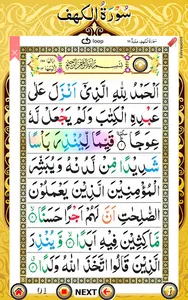 سُورَةُ الكهف
loop
بِسْمِ اللّٰهِ الرَّحْمٰنِ الرَّحِيْمِ
اَلْحَمْدُ لِلّٰهِ الَّذِيْۤ اَنْزَلَ عَلٰى
عَبْدِهِ الْكِتٰبَ وَلَمْ يَجْعَلْ لَّهٗ
عِوَجًا ؕ قَيِّمًا لِّيُنْذِرَ بَاْسًا
شَدِيْدًا مِّنْ لَّدُنْهُ وَيُبَشِّرَ
الْمُؤْمِنِيْنَ الَّذِيْنَ يَعْمَلُوْنَ
الصّٰلِحٰتِ اَنَّ لَهُمْ اَجْرًا حَسَنًا
مَّاكِثِيْنَ فِيْهِ اَبَدًا وَّيُنْذِرَ
الَّذِيْنَ قَالُوا اتَّخَذَ اللّٰهُ وَلَدًا
01
NEXT